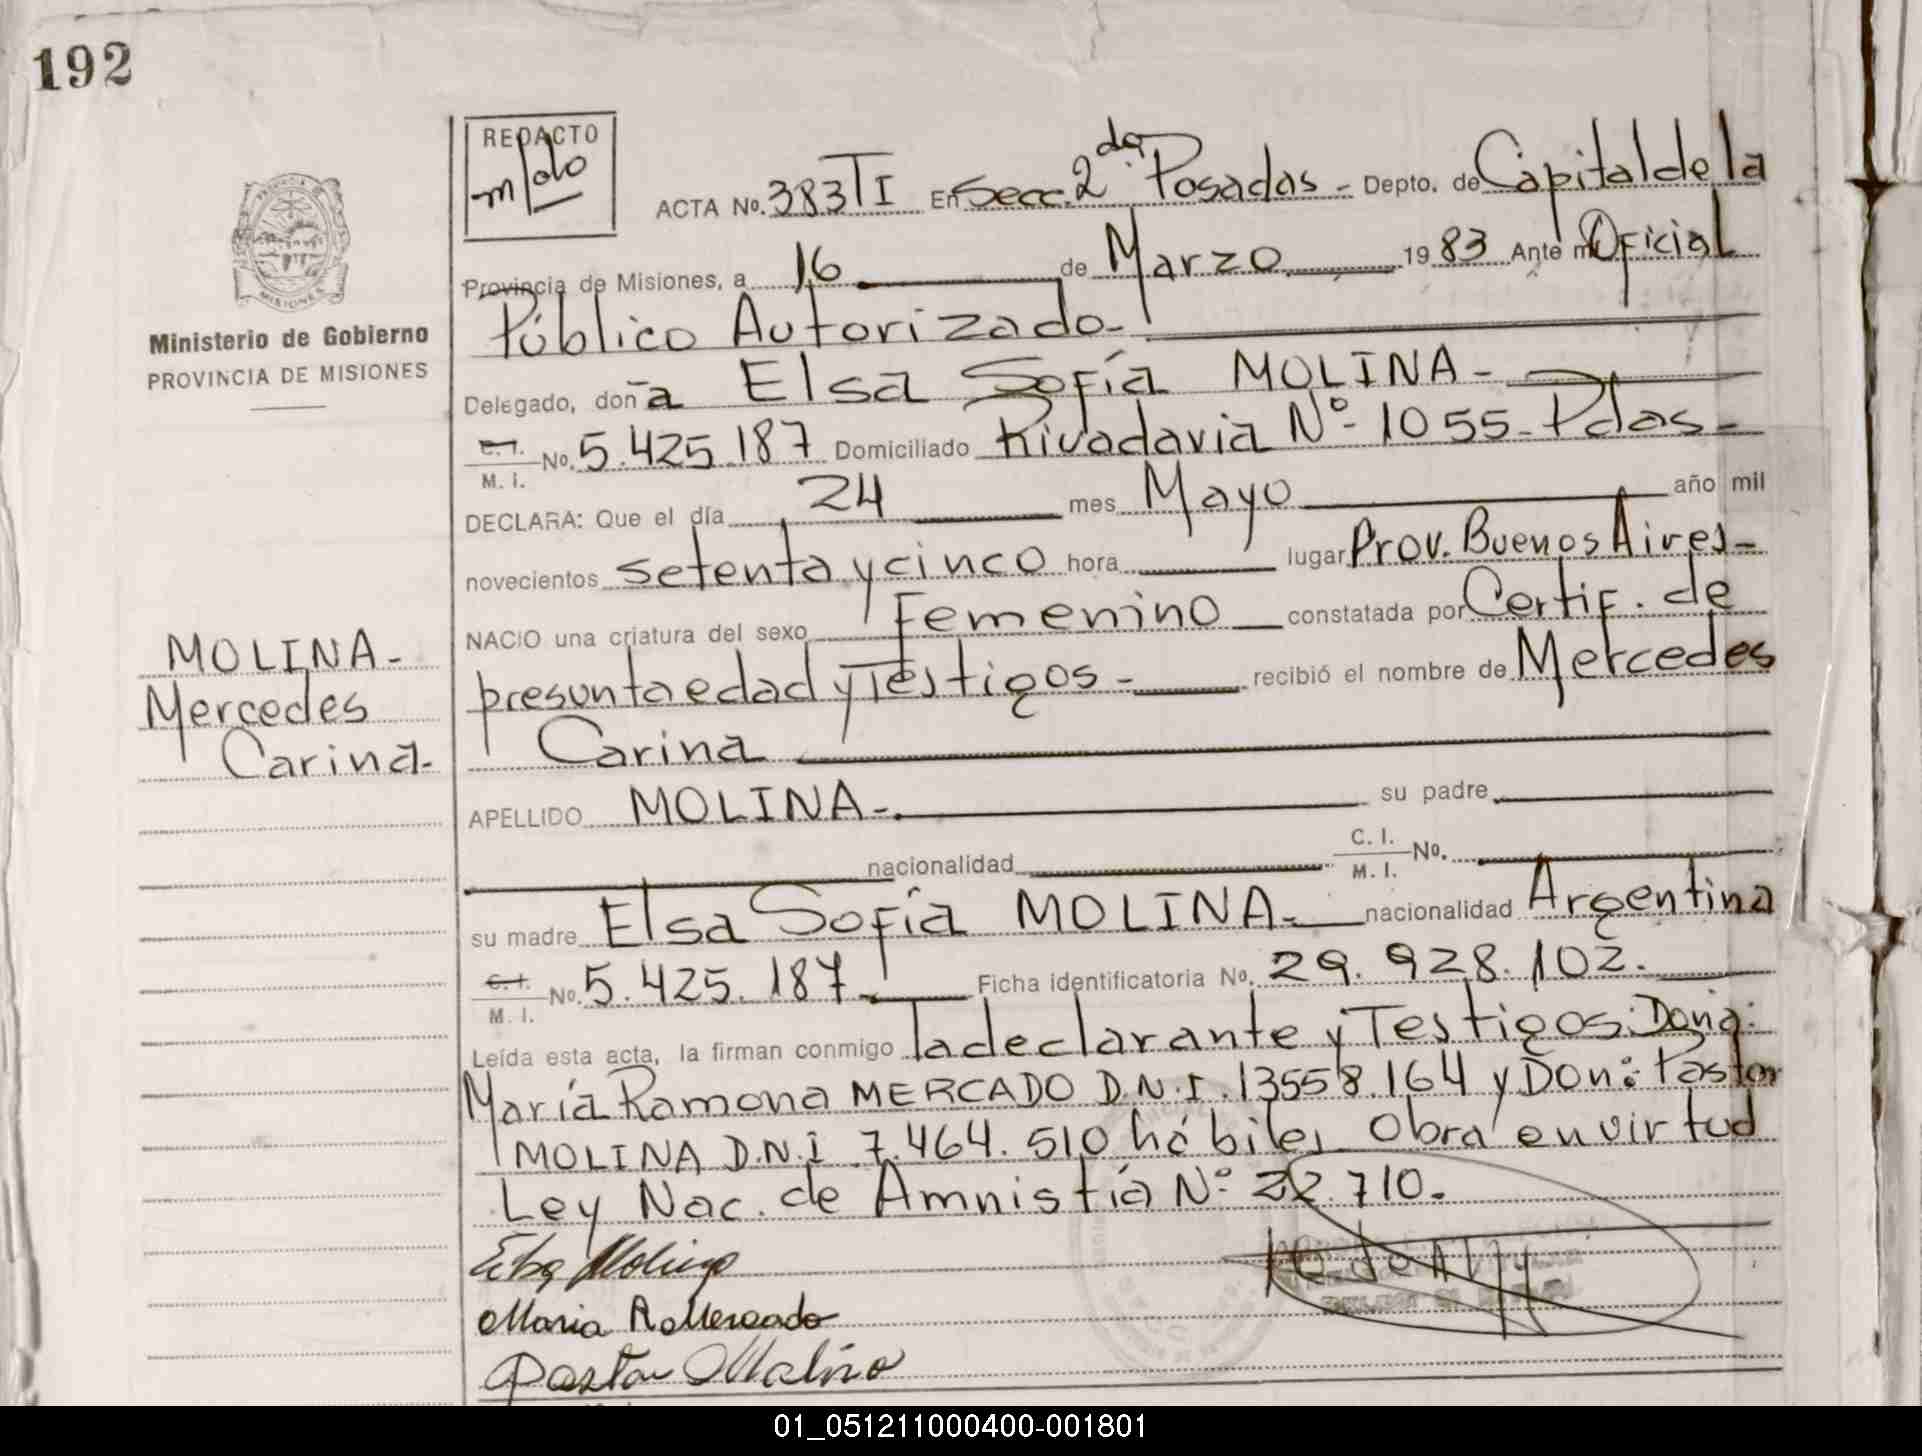 192
REDACTO
ACTA No. 383 TI En Secc. 2da. Posadas - Depto. de Capital de la
Provincia de Misiones, a 16 de Marzo 1983 Ante mí Oficial
Público Autorizado-
PROVINCIA DE MISIONES
Ministerio de Gobierno
PROVINCIA DE MISIONES
Delegado, doña Elsa Sofía MOLINA -
C. I. M. I. No. 5.425.187 Domiciliado Rivadavia Nº 1055 - Pdas -
DECLARA: Que el día 24 mes Mayo año mil
novecientos setenta y cinco hora lugar Prov. Buenos Aires -
NACIO una criatura del sexo Femenino constatada por Certif. de
presunta edad y Testigos - recibió el nombre de Mercedes
Carina
MOLINA -
Mercedes
Carina -
APELLIDO MOLINA - su padre
nacionalidad C. I. M. I. No.
su madre Elsa Sofía MOLINA - nacionalidad Argentina
C. I. M. I. No. 5.425.187 Ficha identificatoria No. 29.928.102.
Leída esta acta, la firman conmigo la declarante y Testigos: Doña:
María Ramona MERCADO D.N.I. 13558.164 y Don: Pastor
MOLINA D.N.I 7.464.510 hábiles Obra en virtud
Ley Nac. de Amnistía Nº 22.710.
Elsa Molina
Maria R Mercado
Pastor Molina
01_051211000400-001801